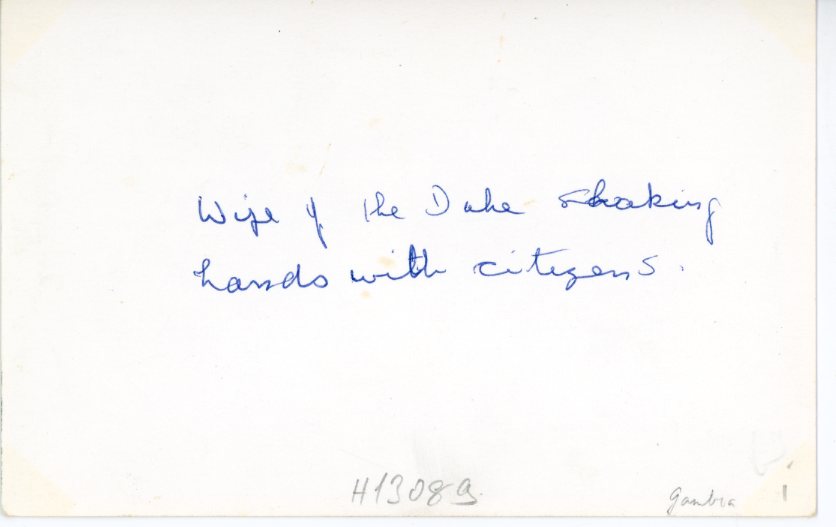 Wife of the Duke shaking
hands with citizens.
H13089
Gambia